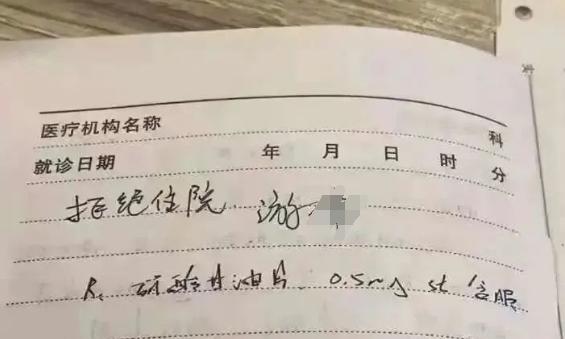 医疗机构名称 科
就诊日期 年 月 日 时 分
拒绝住院 游
R. 硝酸甘油片 0.5mg st 含服